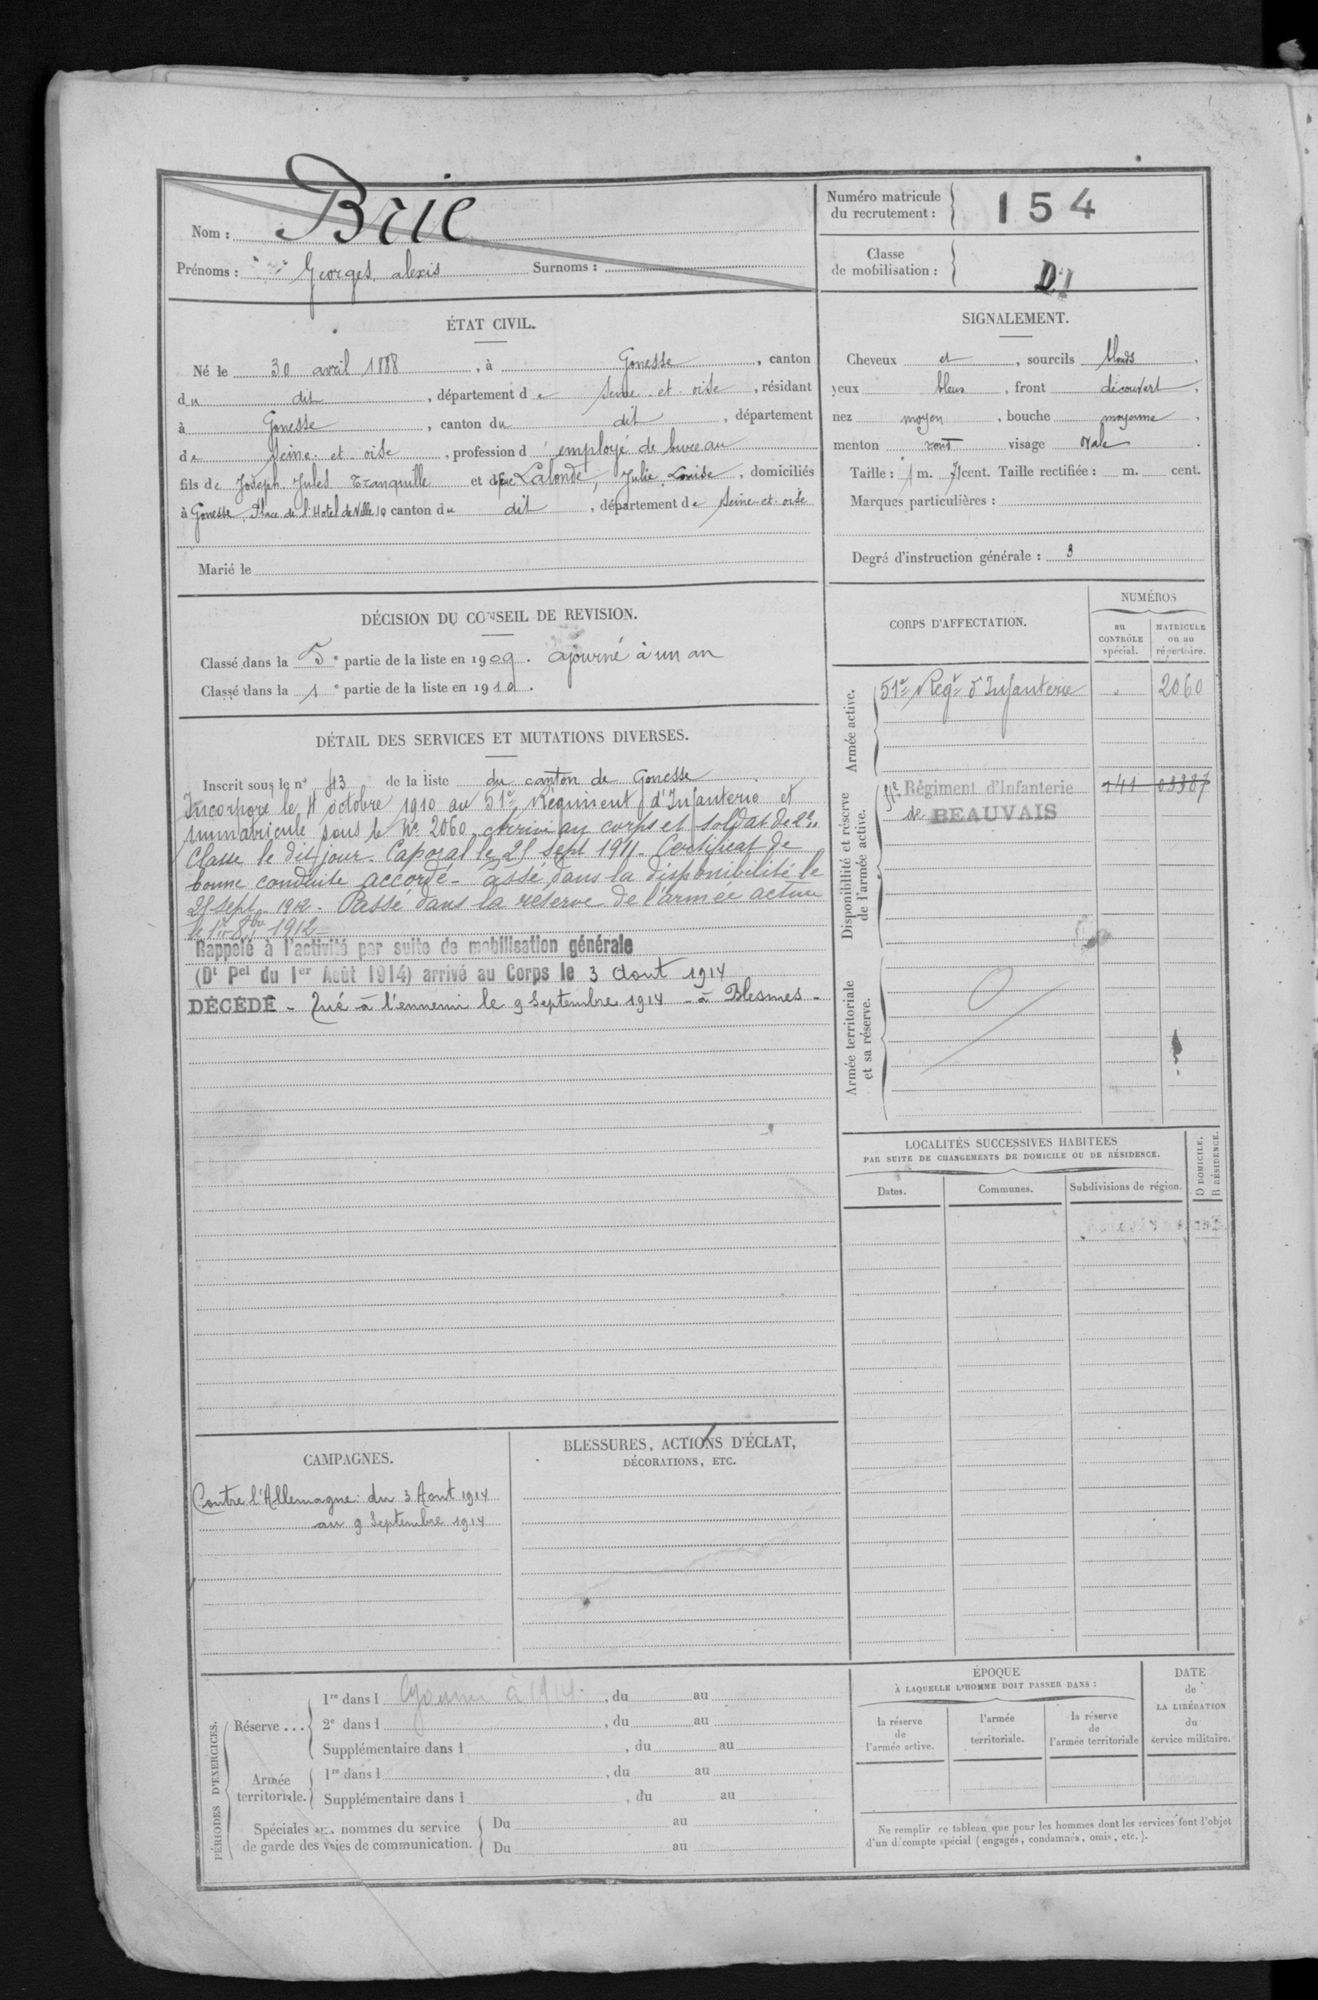 Nom : Brie
Prénoms : Georges, alexis Surnoms :
Numéro matricule
du recrutement : 154
Classe
de mobilisation :
ÉTAT CIVIL.
Né le 30 avril 1888, à Gonesse, canton
du dit, département de Seine-et-oise, résidant
à Gonesse, canton du dit, département
de Seine-et-oise, profession d'employé de bureau
fils de Joseph Jules Tranquille et de Lalonde, Julie Louise, domiciliés
à Gonesse, Place de l'Hotel de Ville 10 canton du dit, département de Seine-et-oise
Marié le
SIGNALEMENT.
Cheveux et, sourcils blonds,
yeux bleus, front découvert,
nez moyen, bouche moyenne,
menton rond visage ovale.
Taille : 1 m. 71 cent. Taille rectifiée : m. cent.
Marques particulières :
Degré d'instruction générale : 3
DÉCISION DU CONSEIL DE REVISION.
Classé dans la 5e partie de la liste en 1909. ajourné à un an
Classé dans la 1e partie de la liste en 1910.
DÉTAIL DES SERVICES ET MUTATIONS DIVERSES.
Inscrit sous le n° 43 de la liste du canton de Gonesse
Incorporé le 4 octobre 1910 au 51e Régiment d'Infanterie et
immatriculé sous le No 2060, arrivé au corps et soldat de 2e
classe le dit jour. Caporal le 25 sept 1911. Certificat de
bonne conduite accordé - Passé dans la disponibilité le
25 sept. 1912. Passé dans la réserve de l'armée active
le 1er 8bre 1912
Rappelé à l'activité par suite de mobilisation générale
(Dt Pel du 1er Août 1914) arrivé au Corps le 3 Aout 1914
DÉCÉDÉ - Tué à l'ennemi le 9 Septembre 1914 - à Blesmes -
CORPS D'AFFECTATION.
NUMÉROS
au
CONTRÔLE
spécial.
MATRICULE
ou au
répertoire.
Armée active.
51e Regt d'Infanterie " 2060
Disponibilité et réserve
de l'armée active.
51e Régiment d'Infanterie 141 03387
de BEAUVAIS
Armée territoriale
et sa réserve.
LOCALITÉS SUCCESSIVES HABITÉES
PAR SUITE DE CHANGEMENTS DE DOMICILE OU DE RÉSIDENCE.
Dates.
Communes.
Subdivisions de région.
D DOMICILE.
R RÉSIDENCE.
CAMPAGNES.
Contre l'Allemagne : du 3 Aout 1914
au 9 Septembre 1914
BLESSURES, ACTIONS D'ÉCLAT,
DÉCORATIONS, ETC.
PÉRIODES D'EXERCICES.
Réserve ...
1re dans l Ajourné à 1914., du au
2e dans l, du au
Supplémentaire dans l, du au
Armée
territoriale.
1re dans l, du au
Supplémentaire dans l, du au
Spéciales aux hommes du service
de garde des voies de communication.
Du au
Du au
ÉPOQUE
À LAQUELLE L'HOMME DOIT PASSER DANS :
la réserve
de
l'armée active.
l'armée
territoriale.
la réserve
de
l'armée territoriale
DATE
de
LA LIBÉRATION
du
service militaire.
Ne remplir ce tableau que pour les hommes dont les services font l'objet
d'un décompte spécial (engagés, condamnés, omis, etc.).